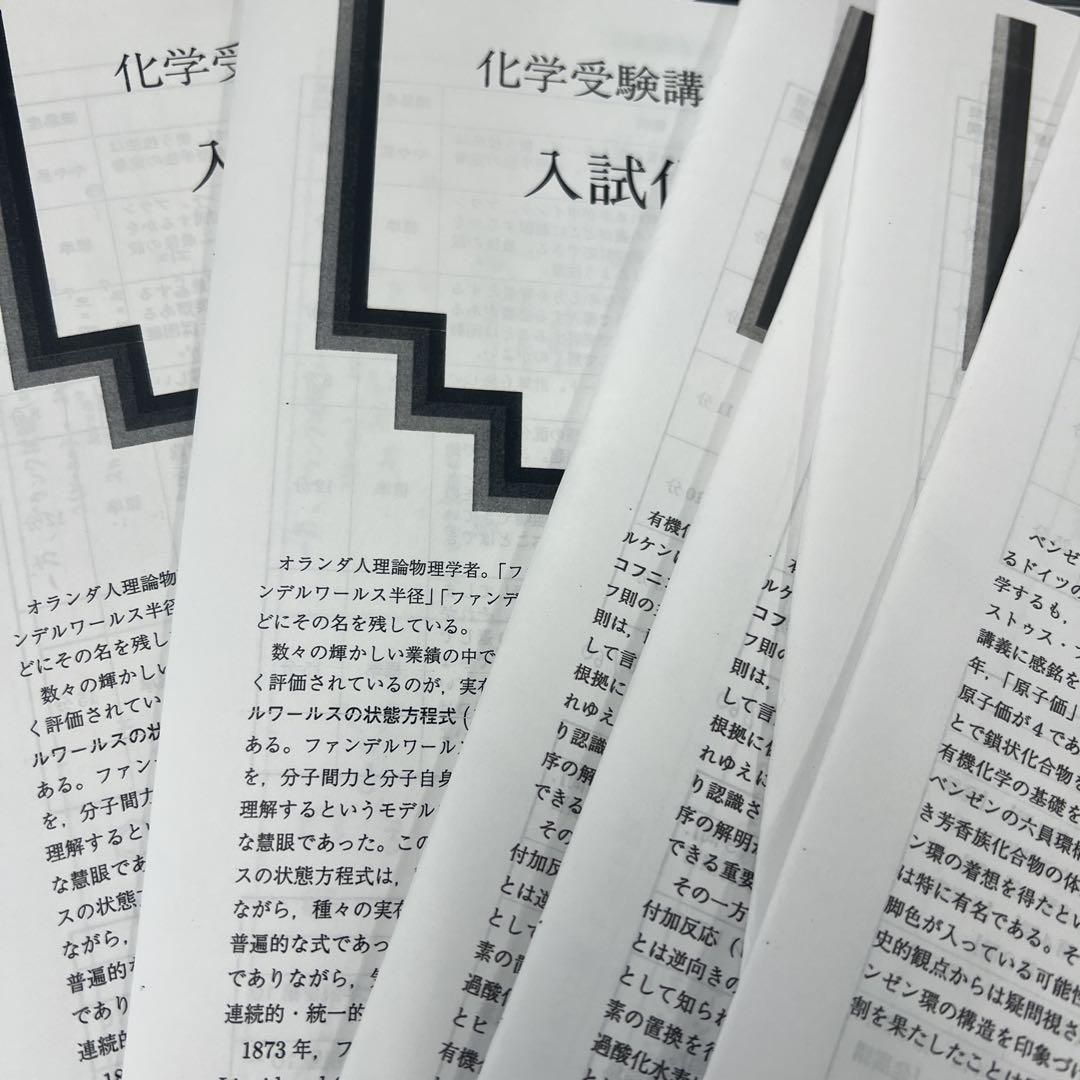 化学受
入
オランダ人理論物
ンデルワールス半径
どにその名を残し
数々の輝かしい
く評価されてい
ルワールスの状
ある。ファン
を，分子間力
理解すると
な慧眼であ
スの状態
ながら，
普遍的な
であり
連続的
化学受験講
入試化
オランダ人理論物理学者。「フ
ンデルワールス半径」「ファンデ
どにその名を残している。
数々の輝かしい業績の中で
く評価されているのが，実在
ルワールスの状態方程式（
ある。ファンデルワール
を，分子間力と分子自身
理解するというモデル
な慧眼であった。この
スの状態方程式は，
ながら，種々の実在
普遍的な式であっ
でありながら，
連続的・統一的
1873年，フ
有機化
ルケン
コフニ
フ則の
則は，
して言
根拠に
れゆえ
り認識
序の解
できる
その
付加反
とは逆
として
素の置
過酸化
とヒ
有機
ルケ
コフ
フ則の
則は，
して言
根拠に
れゆえに
り認識さ
序の解明
できる重要
その一方
付加反応（
とは逆向きの
として知られ
素の置換を行
過酸化水素
ベンゼンの
るドイツの
学するも，
ストゥス・
講義に感銘を
年，「原子価」
原子価が4であ
とで鎖状化合物を
有機化学の基礎を
ベンゼンの六員環構
き芳香族化合物の体
ン環の着想を得たとい
は特に有名である。そ
脚色が入っている可能性
史的観点からは疑問視さ
ンゼン環の構造を印象づけ
割を果たしたことは